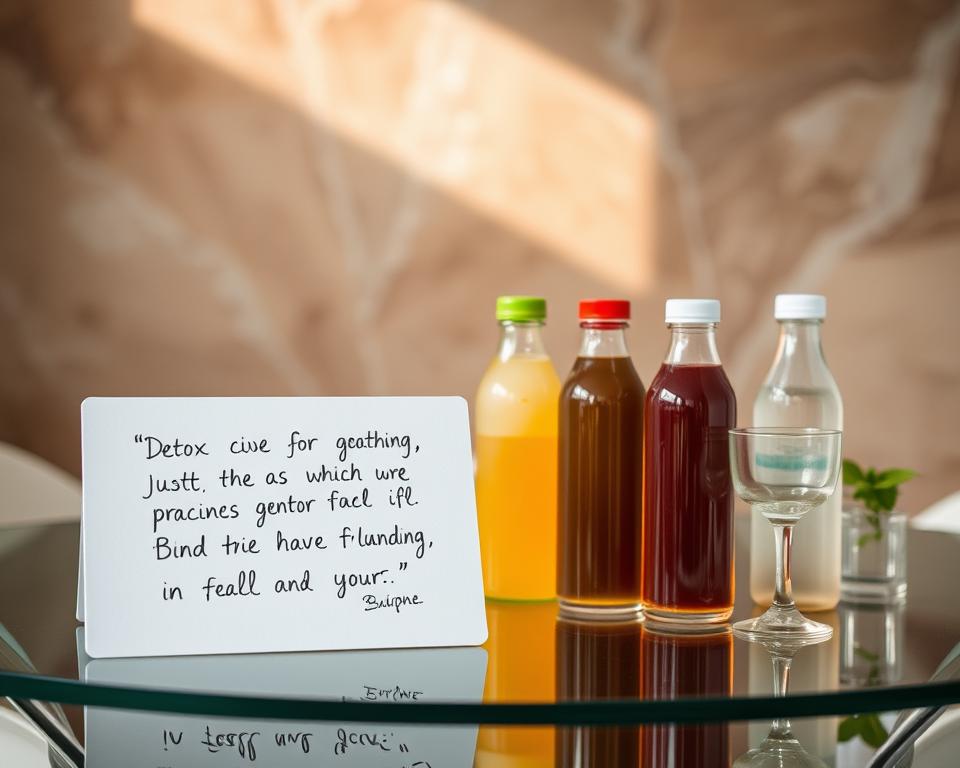 “Detox cive for geathing,
Justt. the as which wre
pracines gentor facl ifl.
Bind trie have f'lunding,
in feall and your.."